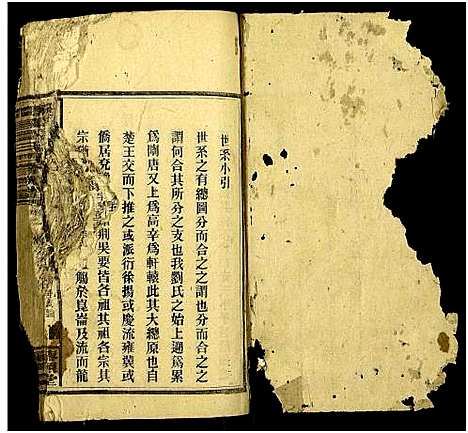 世系小引
世系之有總圖分而合之之謂也分而合之之
謂何合其所分之支也我劉氏之始上遡爲累
爲陶唐又上爲高辛爲軒轅此其大總原也自
楚王交而下推之或派衍徐揚或慶流雍冀或
僑居兗 荆吳要皆各祖其祖各宗其
宗 觴於崑崙及流而龍